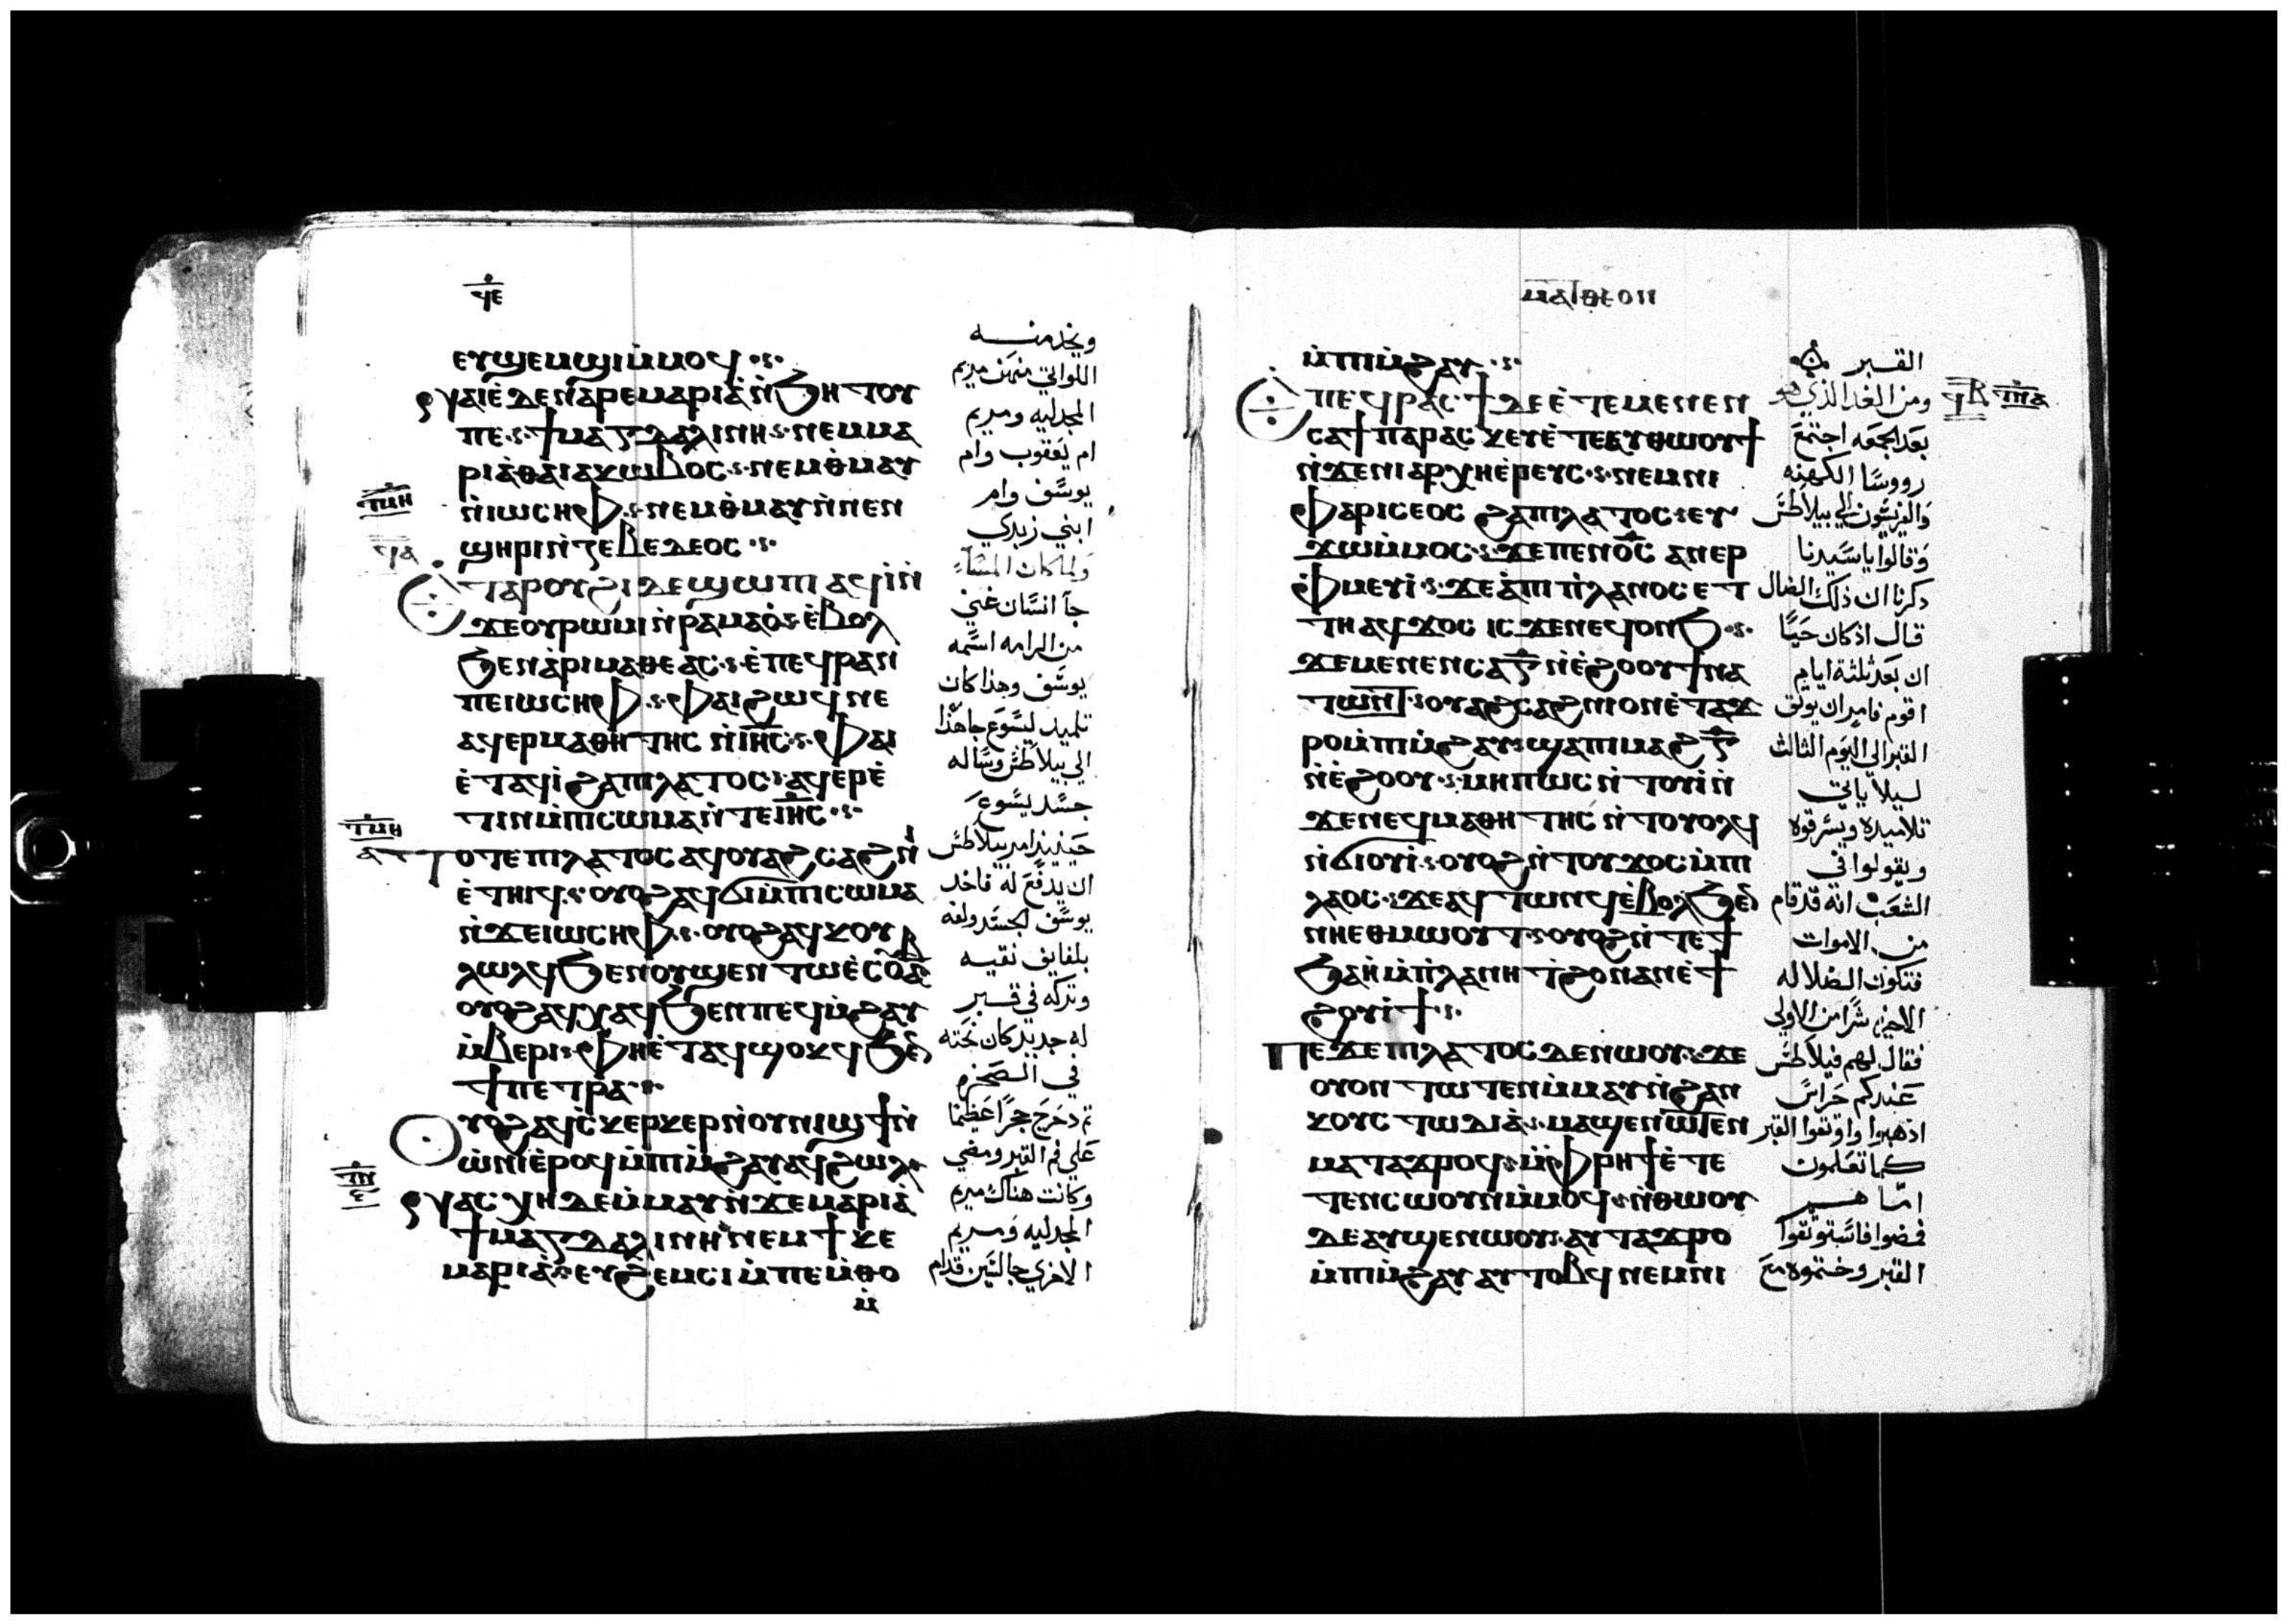 ϥⲉ
ⲉⲩϣⲉⲙϣⲓⲙ̀ⲙⲟϥ
ⲛⲁⲓⲉ̀ⲇⲉⲛⲁⲣⲉⲙⲁⲣⲓⲁ̀ⲛ̀ϧⲏⲧⲟⲩ
ⲡⲉ ϯⲙⲁⲅⲇⲁⲗⲓⲛⲏ ⲛⲉⲙⲙⲁ
ⲣⲓⲁ̀ⲑⲁⲓⲁⲕⲱⲃⲟⲥ ⲛⲉⲙⲑ̀ⲙⲁⲩ
ⲛ̀ⲓⲱⲥⲏⲫ ⲛⲉⲙⲑ̀ⲙⲁⲩⲛ̀ⲛⲉⲛ
ϣⲏⲣⲓⲛ̀ⲍⲉⲃⲉⲇⲉⲟⲥ
ⲉⲧⲁⲣⲟⲩϩⲓⲇⲉϣⲱⲡⲓ ⲁϥⲓ̀ⲛ̀
ϫⲉⲟⲩⲣⲱⲙⲓⲛ̀ⲣⲁⲙⲁⲟ̀ ⲉ̀ⲃⲟⲗ
ϧⲉⲛⲁ̀ⲣⲓⲙⲁⲑⲉⲁⲥ ⲉ̀ⲡⲉϥⲣⲁⲛ
ⲡⲉⲓⲱⲥⲏⲫ ⲫⲁⲓϩⲱϥⲛⲉ
ⲁϥⲉⲣⲙⲁⲑⲏⲧⲏⲥ ⲛ̀ⲓⲏ̅ⲥ̅ ⲫⲁⲓ
ⲉ̀ⲧⲁϥⲓ̀ϩⲁⲡⲓⲗⲁⲧⲟⲥ ⲁϥⲉⲣⲉ̀
ⲧⲓⲛⲙ̀ⲡⲓⲥⲱⲙⲁⲛ̀ⲧⲉⲓⲏ̅ⲥ̅
ⲧⲟⲧⲉⲡⲓⲗⲁⲧⲟⲥ ⲁϥⲟⲩⲁϩⲥⲁϩⲛⲓ̀
ⲉ̀ⲧⲏⲓϥ ⲟⲩⲟϩⲁϥϭⲓⲙ̀ⲡⲓⲥⲱⲙⲁ
ⲛ̀ϫⲉⲓⲱⲥⲏⲫ ⲟⲩⲟϩⲁϥⲕⲟⲩ
ⲗⲱⲗϥϧⲉⲛⲟⲩϣⲉⲛⲧⲱⲉ̀ⲥⲟⲩⲁⲃ
ⲟⲩⲟϩⲁϥⲭⲁϥϧⲉⲛⲡⲉϥⲙ̀ϩⲁⲩ
ⲙ̀ⲃⲉⲣⲓ ⲫⲏⲉ̀ⲧⲁϥϣⲟⲕϥϧⲉⲛ
ϯⲡⲉⲧⲣⲁ
ⲟⲩⲟϩⲁϥⲥ̀ⲕⲉⲣⲕⲉⲣⲛ̀ⲟⲩⲛⲓϣϯⲛ̀
ⲱ̀ⲛⲓⲉ̀ⲣⲟϥⲙ̀ⲡⲓⲙ̀ϩⲁⲩ ⲁϥϩⲱⲗ
ⲛⲁⲥⲭⲏⲇⲉⲙ̀ⲙⲁⲩⲛ̀ϫⲉⲙⲁⲣⲓⲁ̀
ϯⲙⲁⲅⲇⲁⲗⲓⲛⲏ ⲛⲉⲙϯⲕⲉ
ⲙⲁⲣⲓⲁ̀ ⲉⲩϩⲉⲙⲥⲓⲙ̀ⲡⲉⲙ̀ⲑⲟ
ⲙ̀
ويخدمنه
اللواتي منهن مريم
المجدليه ومريم
ام يعقوب وام
يوسف وام
ابني زبدي
ولما كان المساء
جا انسان غني
من الرامه اسمه
يوسف وهذا كان
تلميد ليسوع جا هذا
الي بيلاطس وساله
جسد يسوع
حينيذ امر بيلاطس
ان يدفع له فاخد
يوسف الجسد ولفه
بلفايف نقيه
وتركه في قبر
له جديد كان نحته
في الصخره
ثم دحرج حجرا عظيما
علي فم القبر ومضي
وكانت هناك مريم
المجدليه ومريم
الاخري جالستين قدام
ⲙⲁⲧⲑⲉⲟⲛ
ⲙ̀ⲡⲓⲙ̀ϩⲁⲩ
ⲡⲉϥⲣⲁⲥϯⲇⲉⲉ̀ⲧⲉⲙⲉⲛⲉⲛ
ⲥⲁϯⲡⲁⲣⲁⲥⲕⲉⲩⲉ̀ⲧⲉⲁⲩⲑⲱⲟⲩϯ
ⲛ̀ϫⲉⲛⲓⲁⲣⲭⲏⲉ̀ⲣⲉⲩⲥ ⲛⲉⲙⲛⲓ
ⲫⲁⲣⲓⲥⲉⲟⲥ ϩⲁⲡⲓⲗⲁⲧⲟⲥ ⲉⲩ
ϫⲱⲙ̀ⲙⲟⲥ ϫⲉⲡⲉⲛⲟ̅ⲥ̅ ⲁⲛⲉⲣ
ⲫ̀ⲙⲉⲩⲓ̀ ϫⲉⲁ̀ⲡⲓⲡ̀ⲗⲁⲛⲟⲥ ⲉⲧ
ⲧⲏ ⲁϥϫⲟⲥ ⲓⲥϫⲉⲛⲉϥⲟⲛϧ
ϫⲉⲙⲉⲛⲉⲛⲥⲁⲅ̅ⲛ̀ⲉ̀ϩⲟⲟⲩϯⲛⲁ
ⲧⲱⲛⲧ ⲟⲩⲁϩⲥⲁϩⲛⲓⲟⲛⲉ̀ⲧⲁϫ
ⲣⲟⲙ̀ⲡⲓⲙ̀ϩⲁⲩ ϣⲁⲡⲓⲙⲁϩⲅ̅
ⲛ̀ⲉ̀ϩⲟⲟⲩ ⲙⲏⲡⲱⲥ ⲛ̀ⲧⲟⲩⲓ̀ⲛ̀
ϫⲉⲛⲉϥⲙⲁⲑⲏⲧⲏⲥ ⲛ̀ⲧⲟⲩⲟⲗϥ
ⲛ̀ϭⲓⲟⲩⲓ̀ ⲟⲩⲟϩⲛ̀ⲧⲟⲩϫⲟⲥ ⲙ̀ⲡⲓ
ⲗⲁⲟⲥ ϫⲉⲁϥⲧⲱⲛϥⲉ̀ⲃⲟⲗϧⲉⲛ
ⲛⲏⲉⲑⲙⲱⲟⲩⲧ ⲟⲩⲟϩⲛ̀ⲧⲉϯ
ϧⲁⲏ̀ⲙ̀ⲡ̀ⲗⲁⲛⲏ ϯϩⲟⲛⲁⲛⲉ̀ϯ
ϩⲟⲩⲓ̀ϯ
ⲡⲉϫⲉⲡⲓⲗⲁⲧⲟⲥ ⲇⲉⲛⲱⲟⲩ ϫⲉ
ⲟⲩⲟⲛⲧⲱⲧⲉⲛⲙ̀ⲙⲁⲩⲛ̀ϩⲁⲛ
ⲕⲟⲩⲥⲧⲱⲇⲓⲁ̀ ⲙⲁϣⲉⲛⲱⲧⲉⲛ
ⲙⲁⲧⲁϫⲣⲟϥ ⲙ̀ⲫⲣⲏϯⲉ̀ⲧⲉ
ⲧⲉⲛⲥⲱⲟⲩⲛⲙ̀ⲙⲟϥ ⲛ̀ⲑⲱⲟⲩ
ⲇⲉⲁⲩϣⲉⲛⲱⲟⲩ ⲁⲩⲧⲁϫⲣⲟ
ⲙ̀ⲡⲓⲙ̀ϩⲁⲩ ⲁⲩⲧⲟⲃϥ ⲛⲉⲙⲛⲓ
القبر
ومن الغد الذي هو
بعد الجمعه اجتمع
رووسا الكهنه
والفريسيون الي بيلاطس
وقالوا يا سيدنا
دكرنا ان ذلك الضال
قال اذ كان حيا
ان بعد ثلثة ايام
اقوم فامر ان يوثق
القبر الي اليوم الثالث
ليلا ياتي
تلاميده ويسرقوه
ويقولوا في
الشعب انه قد قام
من الاموات
فتكون الضلاله
الاخيره شرا من الاولي
فقال لهم فيلاطس
عندكم حراس
اذهبوا واوثقوا القبر
كما تعلمون
اما هم
فمضوا فاستوثقوا
القبر وختموه مع